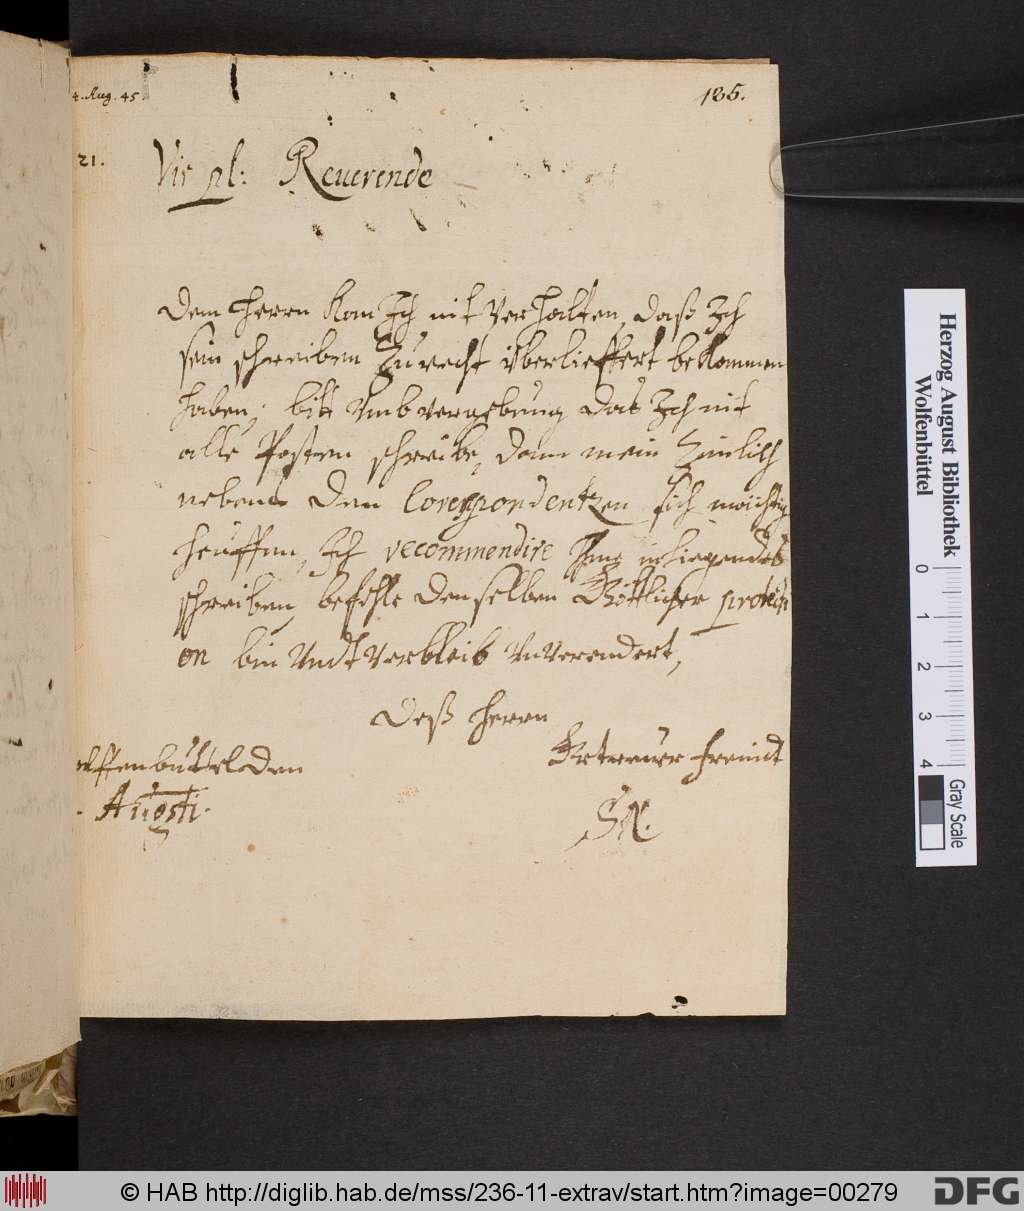 4. Aug. 45.
185.
21.
Vir pl: Reuerende
Dem Herrn kan Ich nit verhalten, daß Ich
sein schreiben Zu recht überlieffert bekommen
haben, bitt Vmb vergebung das Ich nit
alle Posten schreibe, dann mein
nebens den Correspondentzen sich mächtig
heuffen, Ich recommendire Ihme inliegendes
schreiben, befehle denselben Göttlicher protecti
on bin Vndt Verbleib Vnverendert,
Deß Herrn
Getrewer freindt
olffenbüttel den
Augsti.
SN.
Herzog August Bibliothek
Wolfenbüttel
0 1 2 3 4
Gray Scale
© HAB http://diglib.hab.de/mss/236-11-extrav/start.htm?image=00279
DFG